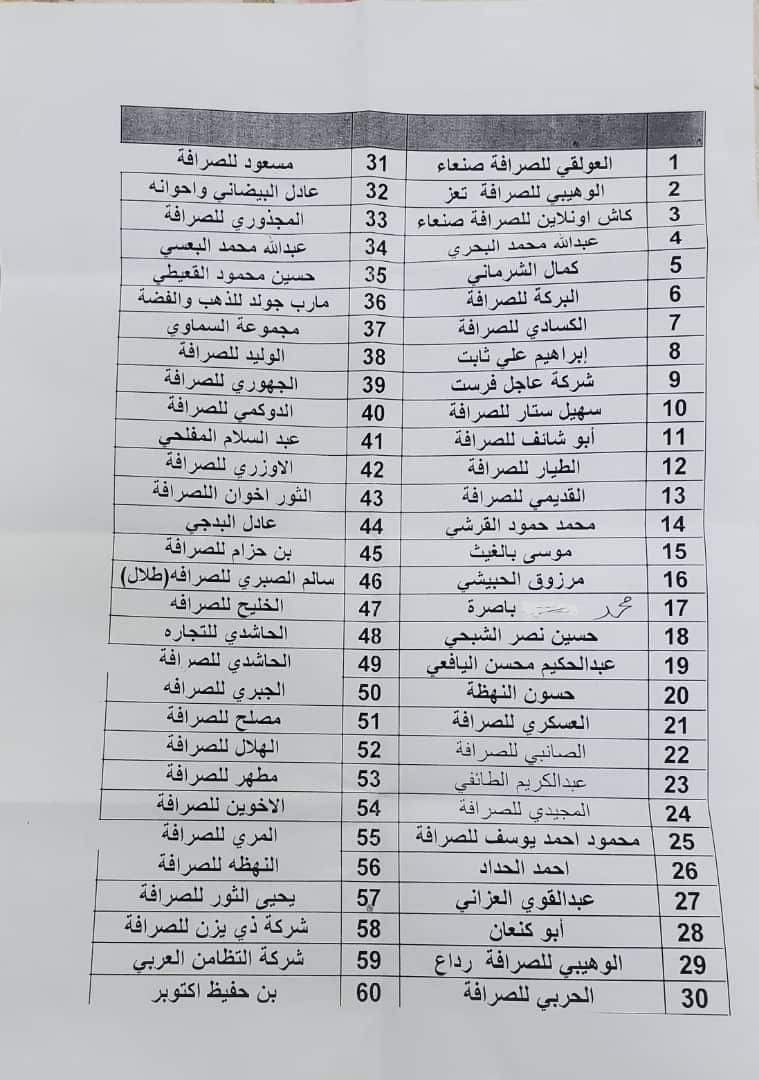 1 العولقي للصرافة صنعاء
2 الوهيبي للصرافة تعز
3 كاش اونلاين للصرافة صنعاء
4 عبدالله محمد البحري
5 كمال الشرماني
6 البركة للصرافة
7 الكسادي للصرافة
8 إبراهيم علي ثابت
9 شركة عاجل فرست
10 سهيل ستار للصرافة
11 أبو شائف للصرافة
12 الطيار للصرافة
13 القديمي للصرافة
14 محمد حمود القرشي
15 موسى بالغيث
16 مرزوق الحبيشي
17 محمد باصرة
18 حسين نصر الشبحي
19 عبدالحكيم محسن اليافعي
20 حسون النهظة
21 العسكري للصرافة
22 الصانبي للصرافة
23 عبدالكريم الطائفي
24 المجيدي للصرافة
25 محمود احمد يوسف للصرافة
26 احمد الحداد
27 عبدالقوي العزاني
28 أبو كنعان
29 الوهيبي للصرافة رداع
30 الحربي للصرافة
31 مسعود للصرافة
32 عادل البيضاني واخوانه
33 المجذوري للصرافة
34 عبدالله محمد البعسي
35 حسين محمود القعيطي
36 مارب جولد للذهب والفضة
37 مجموعة السماوي
38 الوليد للصرافة
39 الجهوري للصرافة
40 الدوكمي للصرافة
41 عبد السلام المفلحي
42 الاوزري للصرافة
43 الثور اخوان اللصرافة
44 عادل البدجي
45 بن حزام للصرافة
46 سالم الصبري للصرافه(طلال)
47 الخليج للصرافه
48 الحاشدي للتجاره
49 الحاشدي للصرافة
50 الجبري للصرافه
51 مصلح للصرافة
52 الهلال للصرافة
53 مطهر للصرافة
54 الاخوين للصرافة
55 المري للصرافة
56 النهظه للصرافة
57 يحيى الثور للصرافة
58 شركة ذي يزن للصرافة
59 شركة التظامن العربي
60 بن حفيظ اكتوبر